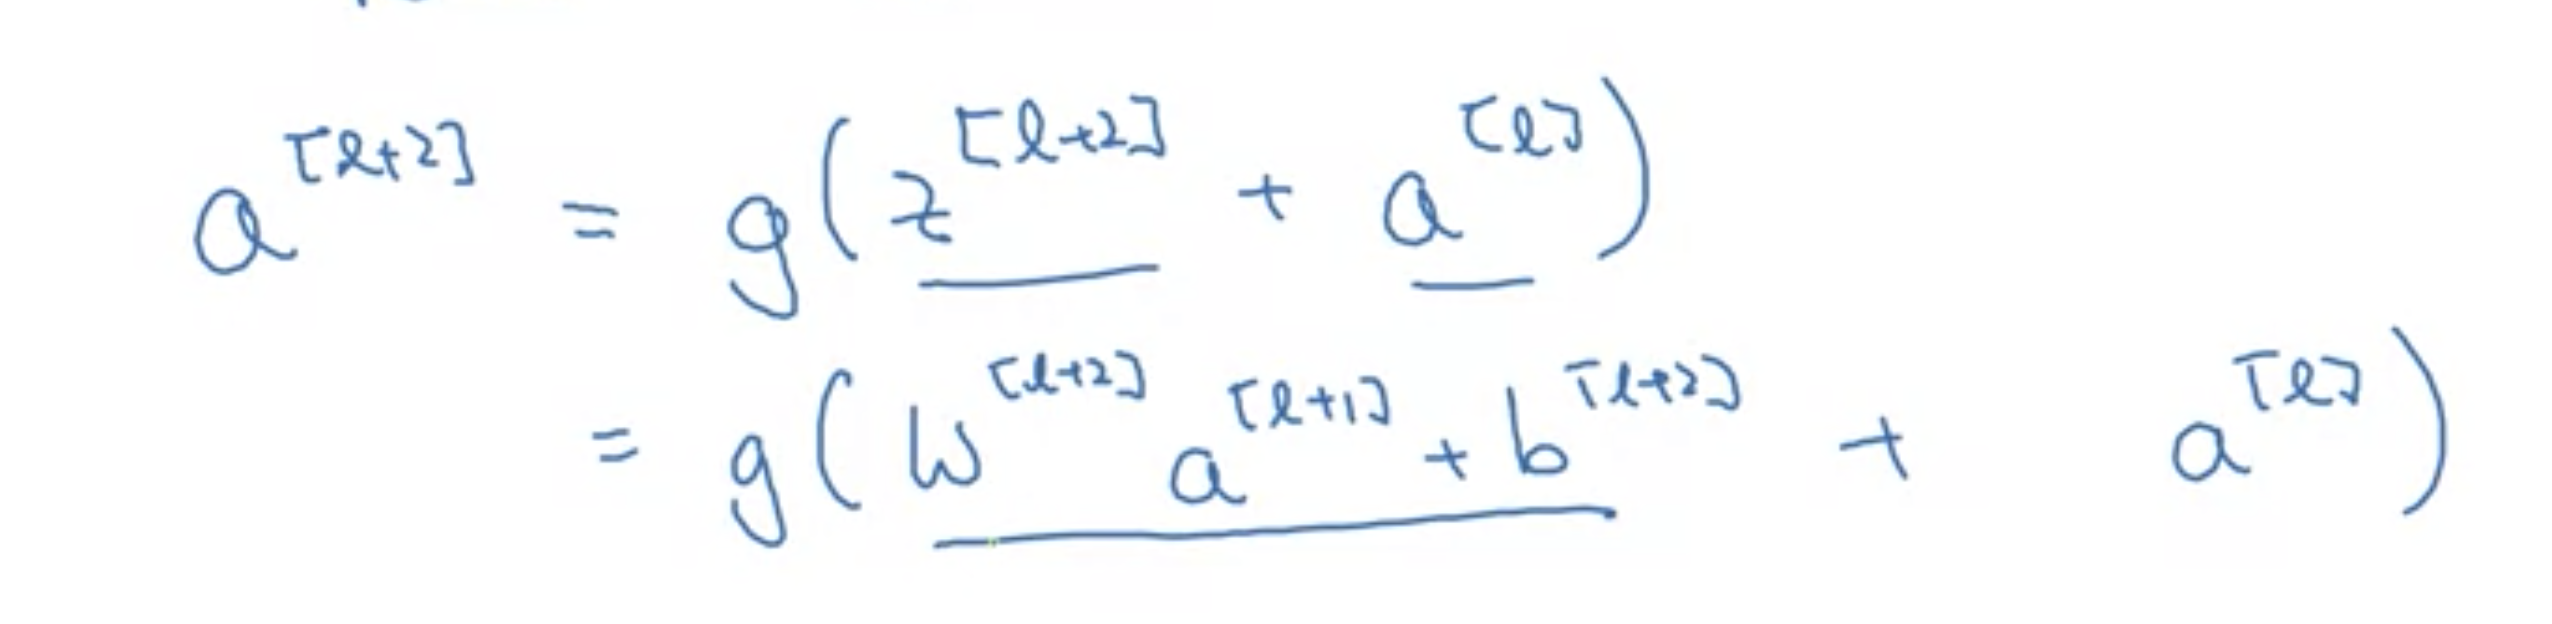 a^[l+2] = g(z^[l+2] + a^[l])
= g(W^[l+2] a^[l+1] + b^[l+2] + a^[l])